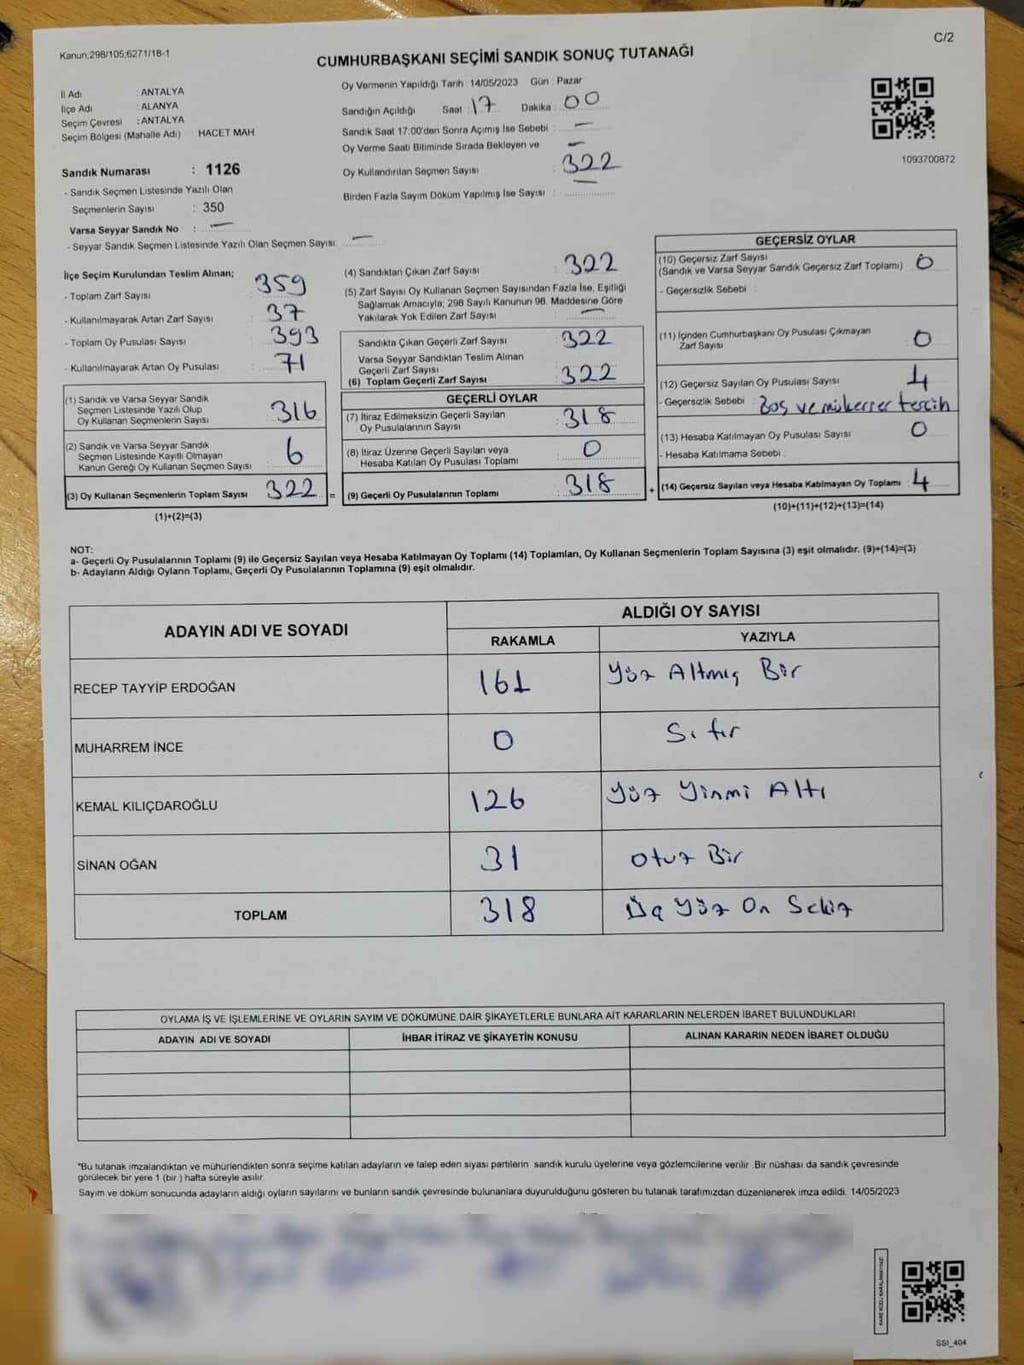 Kanun;298/105;6271/18-1
C/2
CUMHURBAŞKANI SEÇİMİ SANDIK SONUÇ TUTANAĞI
İl Adı : ANTALYA
İlçe Adı : ALANYA
Seçim Çevresi : ANTALYA
Seçim Bölgesi (Mahalle Adı) HACET MAH
Sandık Numarası : 1126
- Sandık Seçmen Listesinde Yazılı Olan
Seçmenlerin Sayısı : 350
Varsa Seyyar Sandık No : —
- Seyyar Sandık Seçmen Listesinde Yazılı Olan Seçmen Sayısı: —
Oy Vermenin Yapıldığı Tarih : 14/05/2023 Gün : Pazar
Sandığın Açıldığı Saat 17 Dakika : 00
Sandık Saat 17:00'den Sonra Açımış İse Sebebi : —
Oy Verme Saati Bitiminde Sırada Bekleyen ve —
Oy Kullandırılan Seçmen Sayısı : 322
Birden Fazla Sayım Döküm Yapılmış İse Sayısı : —
1093700872
İlçe Seçim Kurulundan Teslim Alınan;
- Toplam Zarf Sayısı 359
- Kullanılmayarak Artan Zarf Sayısı 37
- Toplam Oy Pusulası Sayısı 393
- Kullanılmayarak Artan Oy Pusulası 71
(1) Sandık ve Varsa Seyyar Sandık
Seçmen Listesinde Yazılı Olup
Oy Kullanan Seçmenlerin Sayısı 316
(2) Sandık ve Varsa Seyyar Sandık
Seçmen Listesinde Kayıtlı Olmayan
Kanun Gereği Oy Kullanan Seçmen Sayısı 6
(3) Oy Kullanan Seçmenlerin Toplam Sayısı 322 =
(1)+(2)=(3)
(4) Sandıktan Çıkan Zarf Sayısı 322
(5) Zarf Sayısı Oy Kullanan Seçmen Sayısından Fazla İse, Eşitliği
Sağlamak Amacıyla; 298 Sayılı Kanunun 98. Maddesine Göre
Yakılarak Yok Edilen Zarf Sayısı : —
Sandıkta Çıkan Geçerli Zarf Sayısı 322
Varsa Seyyar Sandıktan Teslim Alınan
Geçerli Zarf Sayısı
(6) Toplam Geçerli Zarf Sayısı 322
GEÇERLİ OYLAR
(7) İtiraz Edilmeksizin Geçerli Sayılan
Oy Pusulalarının Sayısı 318
(8) İtiraz Üzerine Geçerli Sayılan veya
Hesaba Katılan Oy Pusulası Toplamı 0
(9) Geçerli Oy Pusulalarının Toplamı 318 +
GEÇERSİZ OYLAR
(10) Geçersiz Zarf Sayısı
(Sandık ve Varsa Seyyar Sandık Geçersiz Zarf Toplamı) 0
- Geçersizlik Sebebi :
(11) İçinden Cumhurbaşkanı Oy Pusulası Çıkmayan
Zarf Sayısı 0
(12) Geçersiz Sayılan Oy Pusulası Sayısı 4
- Geçersizlik Sebebi : Boş ve mükerrer tercih
(13) Hesaba Katılmayan Oy Pusulası Sayısı 0
- Hesaba Katılmama Sebebi :
(14) Geçersiz Sayılan veya Hesaba Katılmayan Oy Toplamı 4
(10)+(11)+(12)+(13)=(14)
NOT:
a- Geçerli Oy Pusulalarının Toplamı (9) ile Geçersiz Sayılan veya Hesaba Katılmayan Oy Toplamı (14) Toplamları, Oy Kullanan Seçmenlerin Toplam Sayısına (3) eşit olmalıdır. (9)+(14)=(3)
b- Adayların Aldığı Oyların Toplamı, Geçerli Oy Pusulalarının Toplamına (9) eşit olmalıdır.
ADAYIN ADI VE SOYADI
ALDIĞI OY SAYISI
RAKAMLA YAZIYLA
RECEP TAYYİP ERDOĞAN 161 Yüz Altmış Bir
MUHARREM İNCE 0 Sıfır
KEMAL KILIÇDAROĞLU 126 Yüz Yirmi Altı
SİNAN OĞAN 31 Otuz Bir
TOPLAM 318 Üç Yüz On Sekiz
OYLAMA İŞ VE İŞLEMLERİNE VE OYLARIN SAYIM VE DÖKÜMÜNE DAİR ŞİKAYETLERLE BUNLARA AİT KARARLARIN NELERDEN İBARET BULUNDUKLARI
ADAYIN ADI VE SOYADI İHBAR İTİRAZ VE ŞİKAYETİN KONUSU ALINAN KARARIN NEDEN İBARET OLDUĞU
"Bu tutanak imzalandıktan ve mühürlendikten sonra seçime katılan adayların ve talep eden siyasi partilerin sandık kurulu üyelerine veya gözlemcilerine verilir .Bir nüshası da sandık çevresinde
görülecek bir yere 1 (bir ) hafta süreyle asılır.
Sayım ve döküm sonucunda adayların aldığı oyların sayılarını ve bunların sandık çevresinde bulunanlara duyurulduğunu gösteren bu tutanak tarafımızdan düzenlenerek imza edildi. 14/05/2023
SSI_404